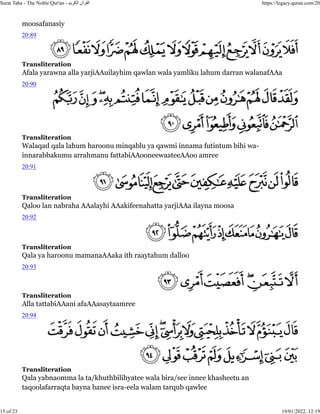 Surat Taha - The Noble Qur'an - القرآن الكريم
https://legacy.quran.com/20
moosafanasiy
20:89
أَفَلَا يَرَوْنَ أَلَّا يَرْجِعُ إِلَيْهِمْ قَوْلًا وَلَا يَمْلِكُ لَهُمْ ضَرًّا وَلَا نَفْعًا ﴿٨٩﴾
Transliteration
Afala yarawna alla yarjiAAuilayhim qawlan wala yamliku lahum darran walanafAAa
20:90
وَلَقَدْ قَالَ لَهُمْ هَارُونُ مِن قَبْلُ يَا قَوْمِ إِنَّمَا فُتِنتُم بِهِ وَإِنَّ رَبَّكُمُ
الرَّحْمَٰنُ فَاتَّبِعُونِي وَأَطِيعُوا أَمْرِي ﴿٩٠﴾
Transliteration
Walaqad qala lahum haroonu minqablu ya qawmi innama futintum bihi wa-
innarabbakumu arrahmanu fattabiAAooneewaateeAAoo amree
20:91
قَالُوا لَن نَّبْرَحَ عَلَيْهِ عَاكِفِينَ حَتَّىٰ يَرْجِعَ إِلَيْنَا مُوسَىٰ ﴿٩١﴾
Transliteration
Qaloo lan nabraha AAalayhi AAakifeenahatta yarjiAAa ilayna moosa
20:92
قَالَ يَا هَارُونُ مَا مَنَعَكَ إِذْ رَأَيْتَهُمْ ضَلُّوا ﴿٩٢﴾
Transliteration
Qala ya haroonu mamanaAAaka ith raaytahum dalloo
20:93
أَلَّا تَتَّبِعَنِ أَفَعَصَيْتَ أَمْرِي ﴿٩٣﴾
Transliteration
Alla tattabiAAani afaAAasaytaamree
20:94
قَالَ يَبْنَؤُمَّ لَا تَأْخُذْ بِلِحْيَتِي وَلَا بِرَأْسِي إِنِّي خَشِيتُ أَن تَقُولَ فَرَّقْتَ
بَيْنَ بَنِي إِسْرَائِيلَ وَلَمْ تَرْقُبْ قَوْلِي ﴿٩٤﴾
Transliteration
Qala yabnaomma la ta/khuthbilihyatee wala bira/see innee khasheetu an
taqoolafarraqta bayna banee isra-eela walam tarqub qawlee
15 of 23
19/01/2022, 12:19